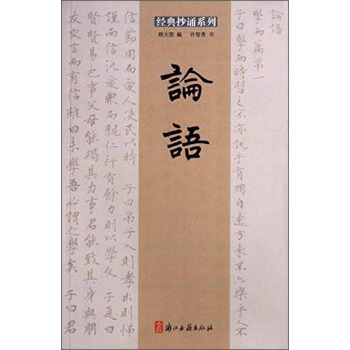 经典抄诵系列
编 许智勇 书
論語
論語
學而篇第一
子曰學而時習之不亦説乎有朋自遠方來不亦樂乎人
信節用而愛人使民以時 子曰弟子入則孝出則悌
謹而信汎愛眾而親仁行有餘力則以學文 子夏曰
賢賢易色事父母能竭其力事君能致其身與朋
友交言而有信雖曰未學吾必謂之學矣 子曰君
浙江古籍出版社